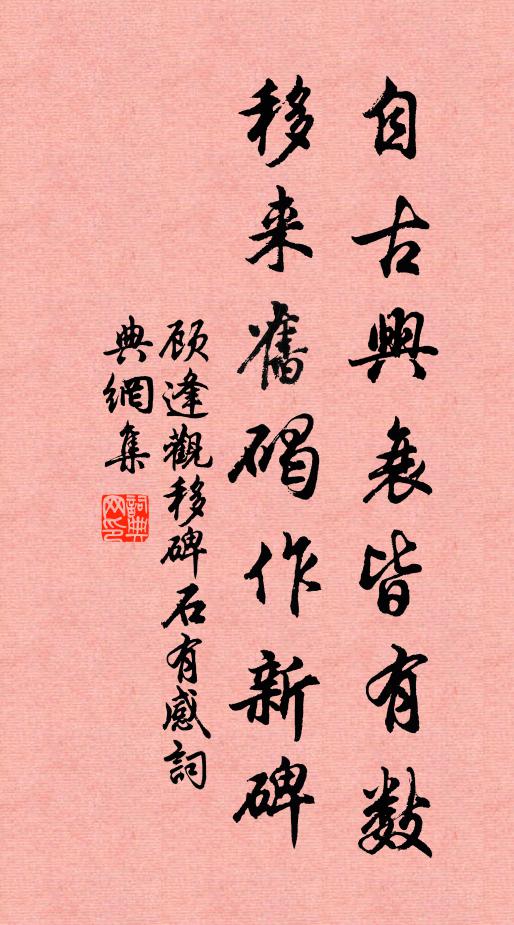 自古興衰皆有數
移来舊碣作新碑
顾逢觀移碑石有感詞
典網集
詞典网印